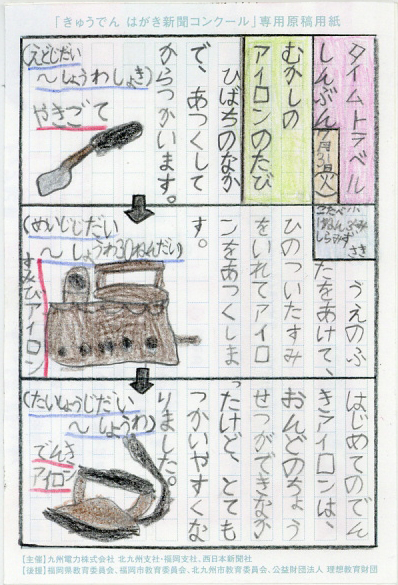 「きゅうでん はがき新聞コンクール」専用原稿用紙
タイムトラベル
しんぶん
むかしの
アイロンのたび
ひばちのなか
で、あつくして
からつかいます。
(えどじだい
〜しょうわしょき)
やきごて
うえのふ
たをあけて、
ひのついたすみ
をいれてアイロ
ンをあつくしま
す。
(めいじじだい
〜しょうわ30ねんだい)
すみびアイロン
はじめてのでん
きアイロンは、
おんどのちょう
せつができなか
ったけど、とても
つかいやすくな
りました。
(たいしょうじだい
〜しょうわ)
でんき
アイロン
【主催】九州電力株式会社 北九州支社・福岡支社、西日本新聞社
【後援】福岡県教育委員会、福岡市教育委員会、北九州市教育委員会、公益財団法人 理想教育財団